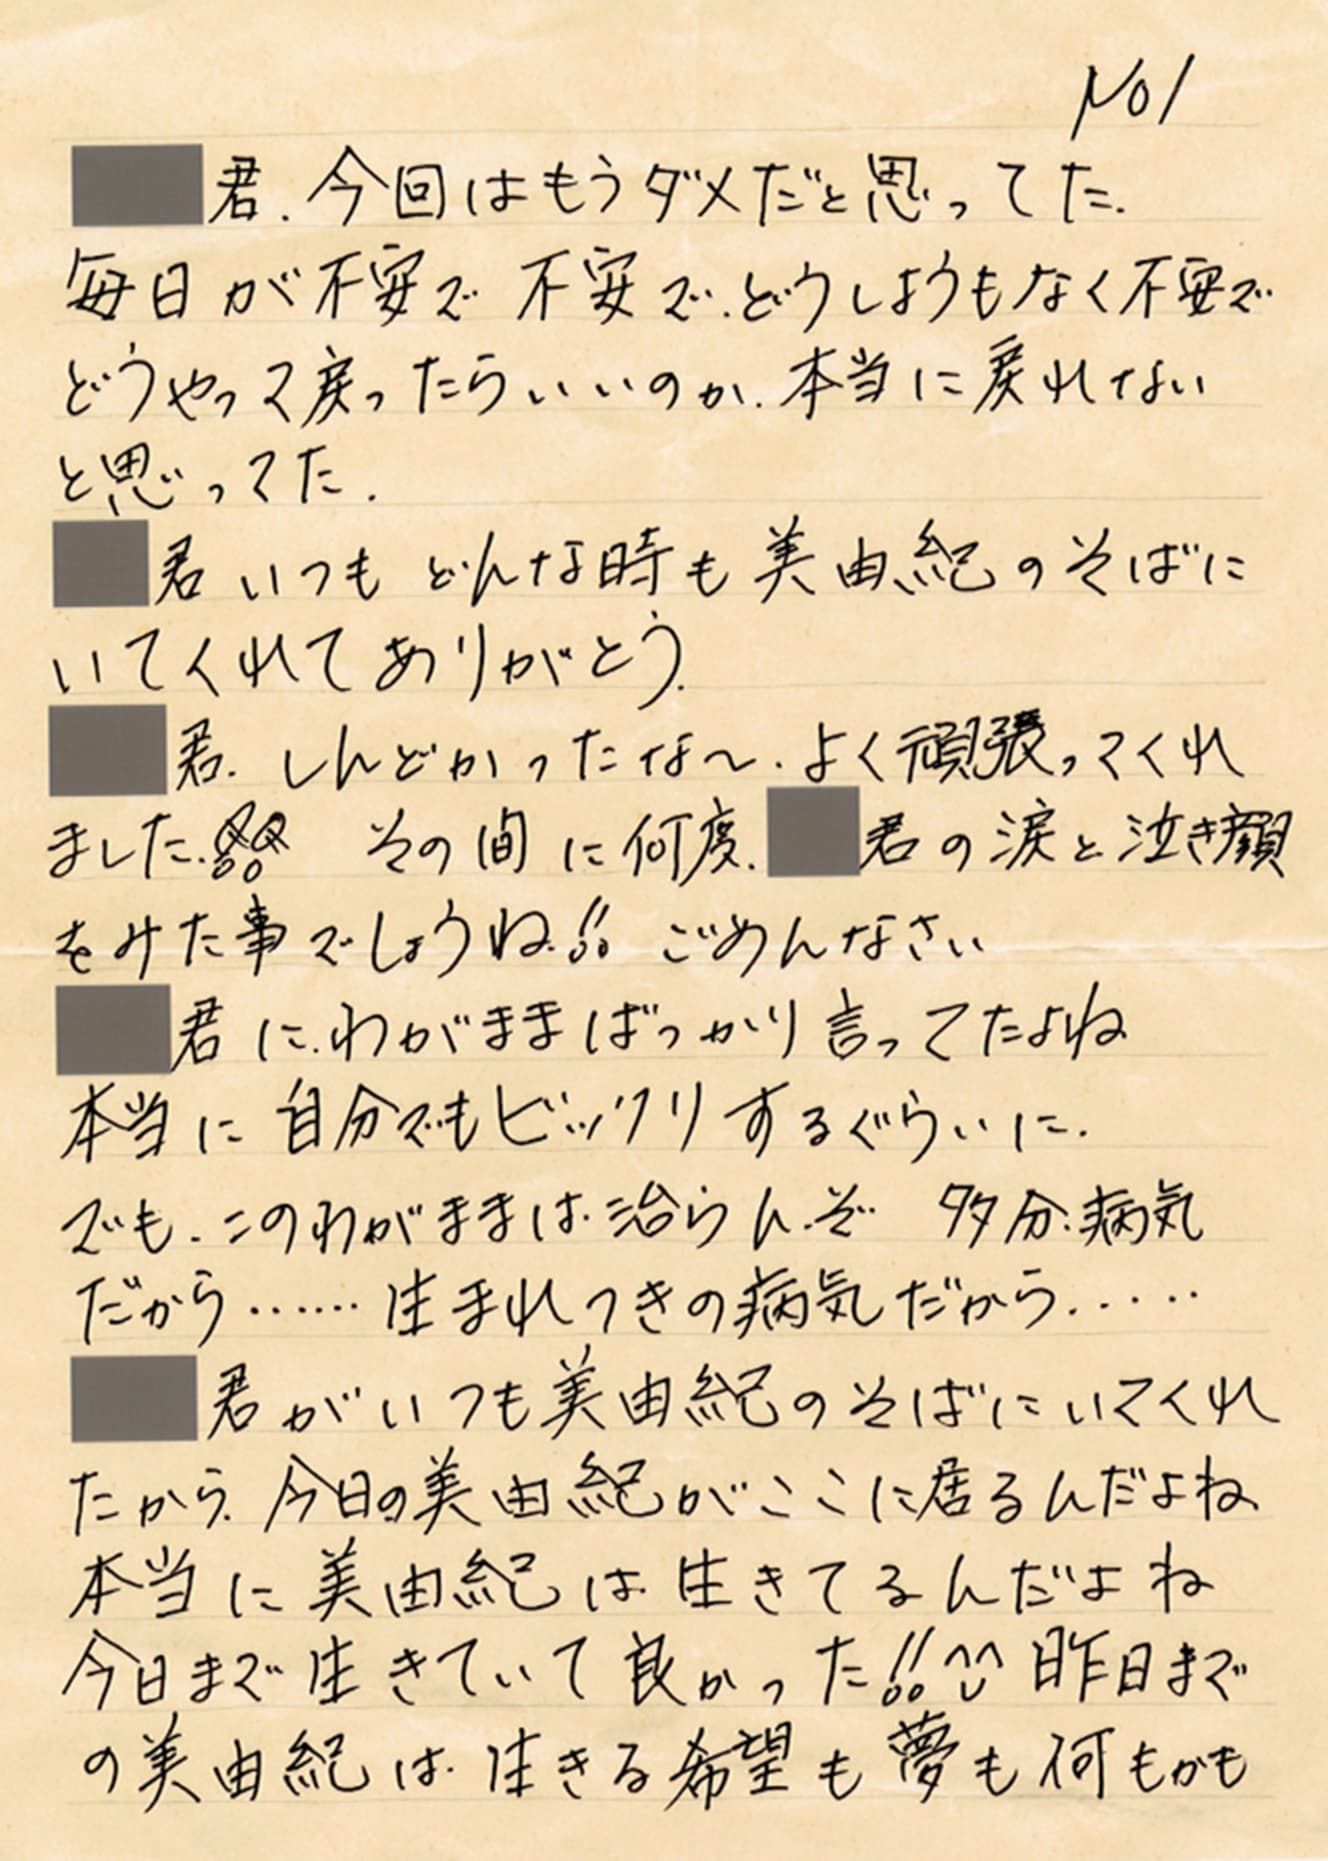 No1
君.今回はもうダメだと思ってた.
毎日が不安で 不安で.どうしようもなく不安で
どうやって戻ったらいいのか.本当に戻れない
と思ってた.
君いつも どんな時も美由紀のそばに
いてくれてありがとう.
君.しんどかったな〜.よく頑張ってくれ
ました.!! その間に何度.君の涙と泣き顔
をみた事でしょうね!! ごめんなさい
君に.わがままばっかり言ってたよね
本当に自分でもビックリするぐらいに.
でも.このわがままは.治らん.ぞ 多分.病気
だから……生まれつきの病気だから.....
君がいつも美由紀のそばにいてくれ
たから.今日の美由紀がここに居るんだよね
本当に美由紀は.生きてるんだよね
今日まで生きていて良かった!!^^ 昨日まで
の美由紀は.生きる希望も夢も何もかも